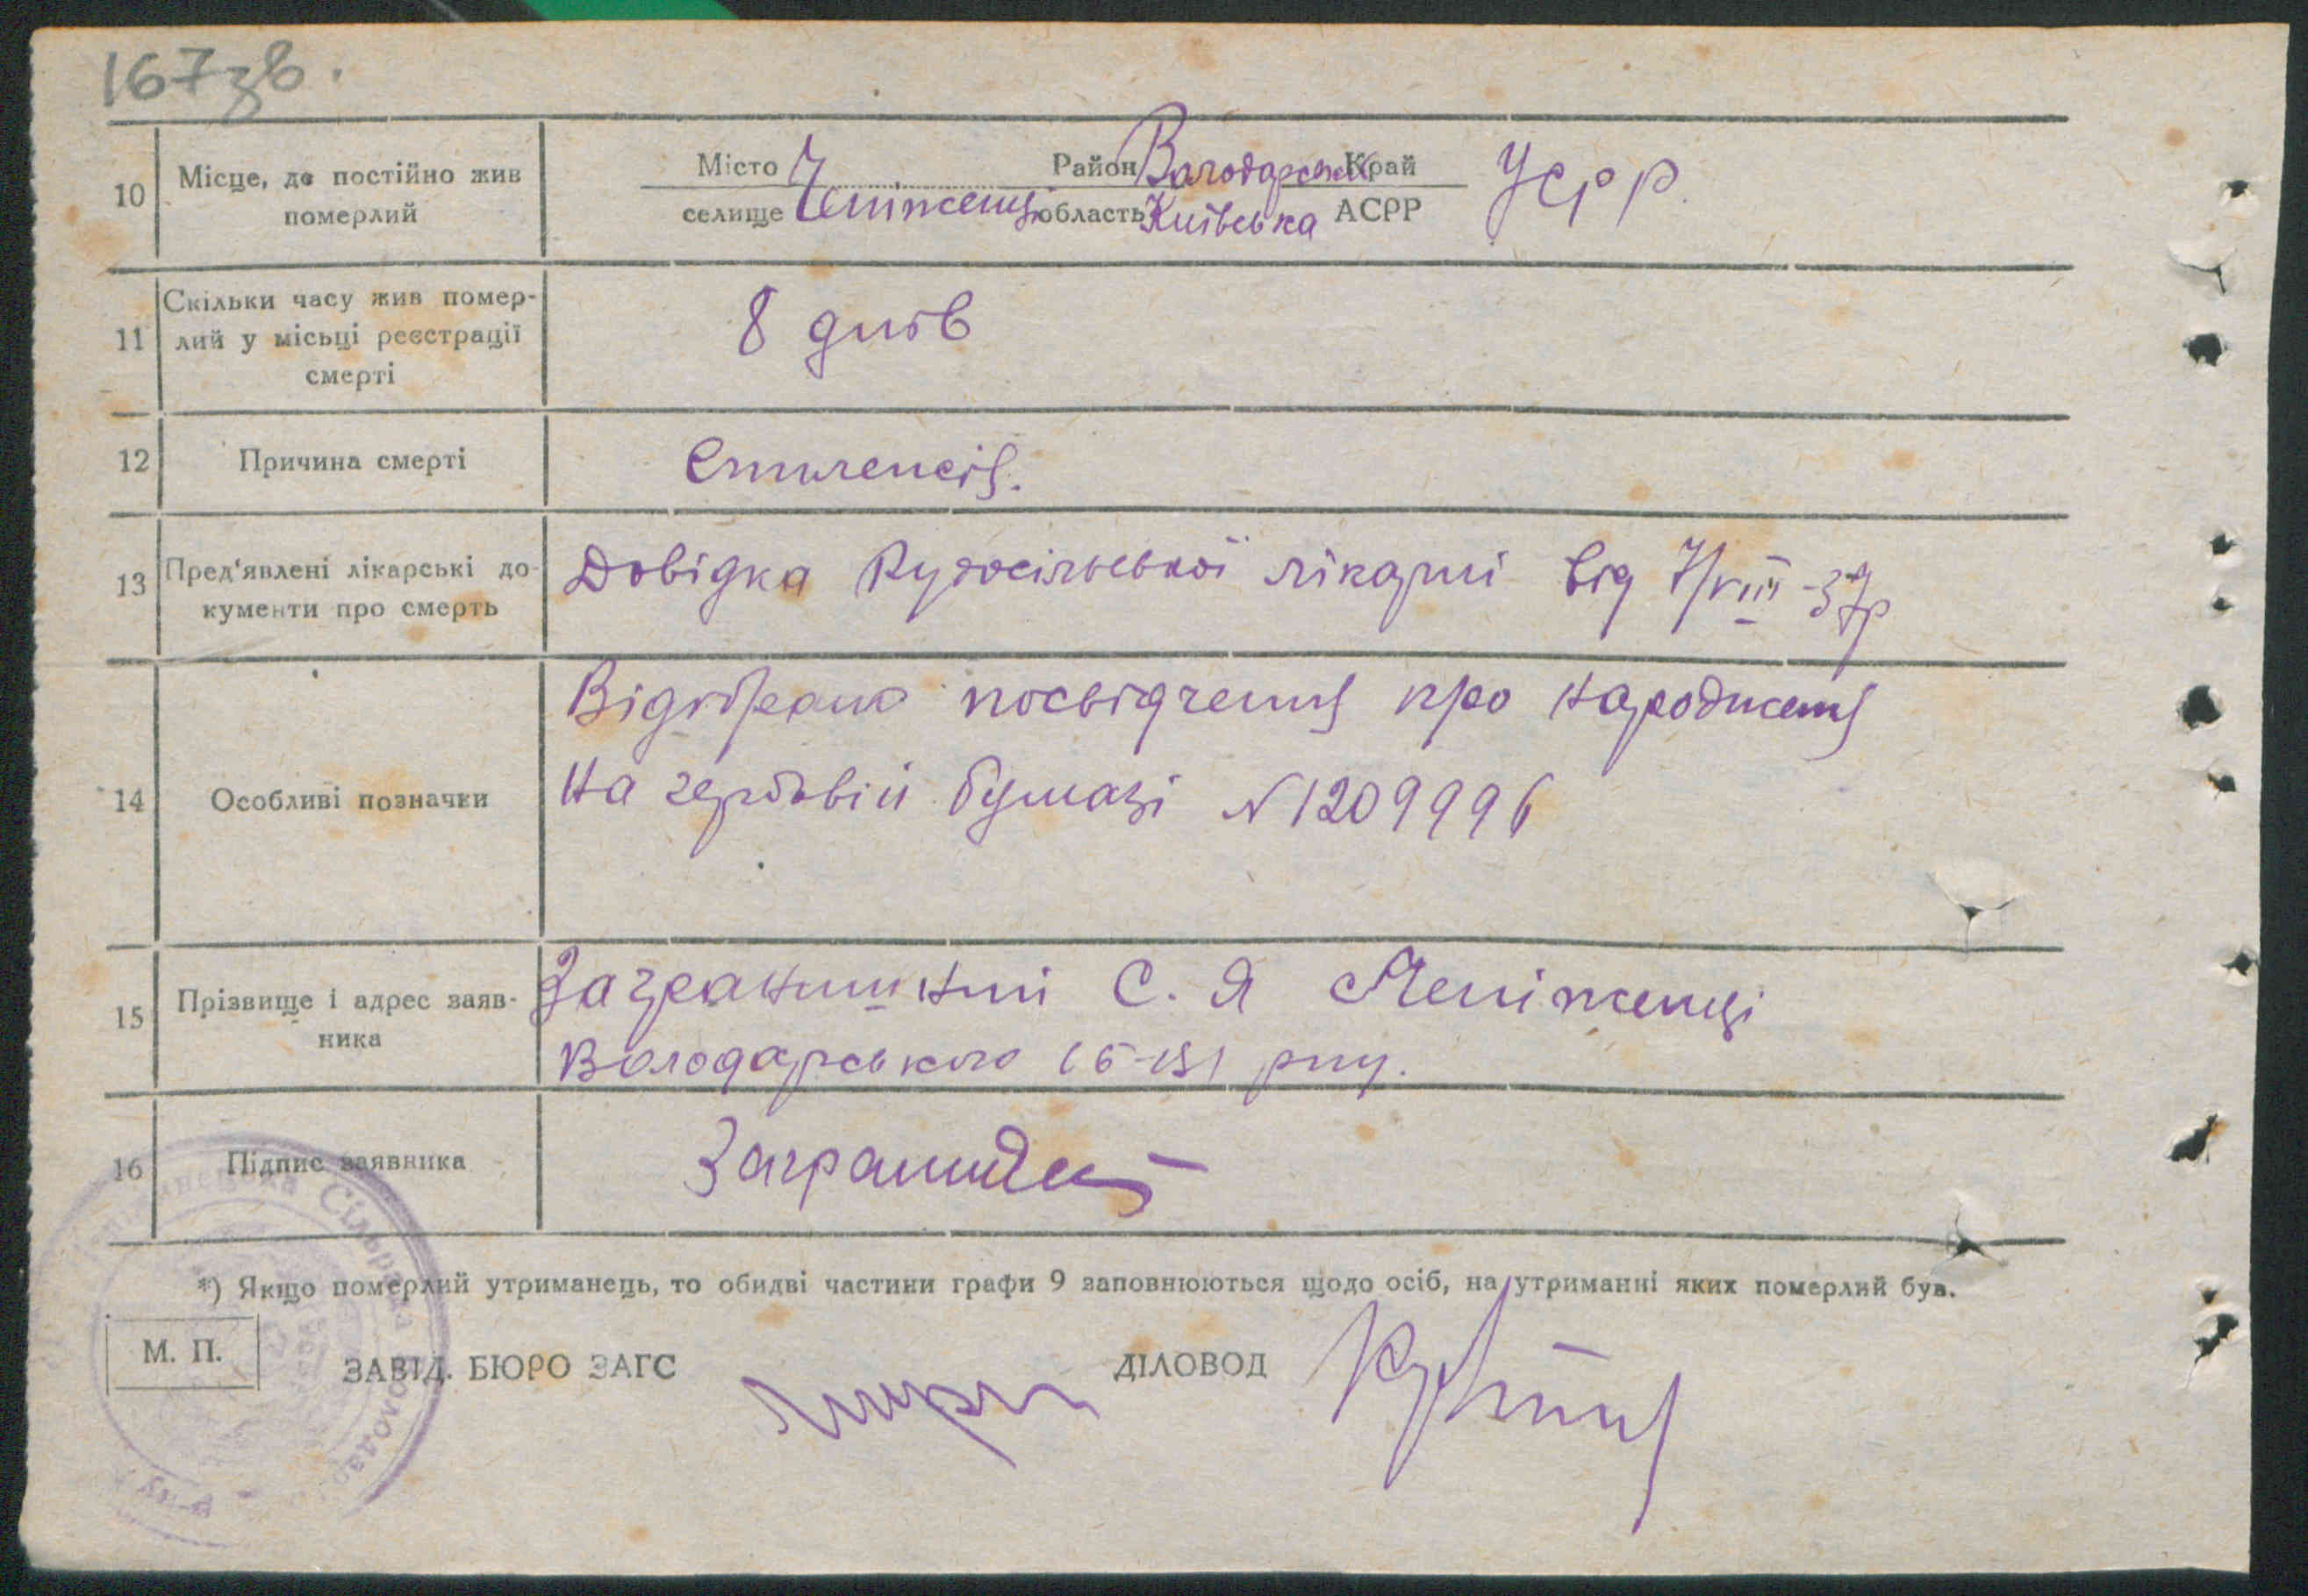 167 зв.
10 Місце, де постійно жив померлий
Місто Район Володарський Край УСРР.
селище Чепіженці область Київська АСРР
11 Скільки часу жив померлий у місці реєстрації смерті
8 днів
12 Причина смерті
Епилепсія.
13 Пред'явлені лікарські документи про смерть
Довідка Рудосільської лікарні від 7/VIII-37р
14 Особливі позначки
Відібрано посвідчення про народження
на гербовій бумазі N 1209996
15 Прізвище і адрес заявника
Заграничний С. Я Чепіженці
Володарського р-ну.
16 Підпис заявника
*) Якщо померлий утриманець, то обидві частини графи 9 заповнюються щодо осіб, на утриманні яких померлий був.
М. П.
ЗАВІД. БЮРО ЗАГС
ДІЛОВОД